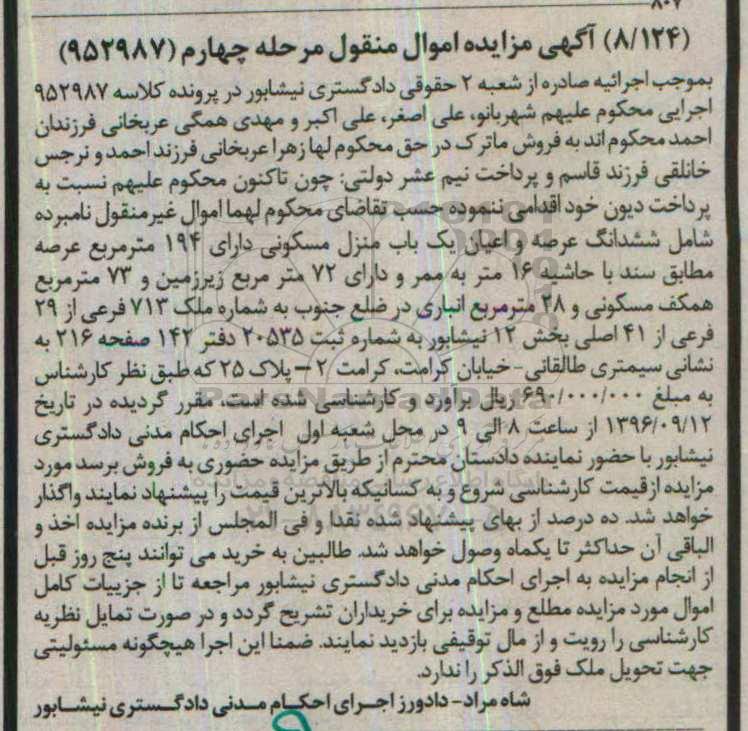 ۸۰۷
(۸/۱۲۴) آگهی مزایده اموال منقول مرحله چهارم (۹۵۲۹۸۷)
بموجب اجرائیه صادره از شعبه ۲ حقوقی دادگستری نیشابور در پرونده کلاسه ۹۵۲۹۸۷
اجرایی محکوم علیهم شهربانو، علی اصغر، علی اکبر و مهدی همگی عربخانی فرزندان
احمد محکوم اند به فروش ماترک در حق محکوم لها زهرا عربخانی فرزند احمد و نرجس
خانلقی فرزند قاسم و پرداخت نیم عشر دولتی: چون تاکنون محکوم علیهم نسبت به
پرداخت دیون خود اقدامی ننموده حسب تقاضای محکوم لهما اموال غیرمنقول نامبرده
شامل ششدانگ عرصه و اعیان یک باب منزل مسکونی دارای ۱۹۴ مترمربع عرصه
مطابق سند با حاشیه ۱۶ متر به ممر و دارای ۷۲ متر مربع زیرزمین و ۷۳ مترمربع
همکف مسکونی و ۲۸ مترمربع انباری در ضلع جنوب به شماره ملک ۷۱۳ فرعی از ۲۹
فرعی از ۴۱ اصلی بخش ۱۲ نیشابور به شماره ثبت ۲۰۵۳۵ دفتر ۱۴۲ صفحه ۲۱۶ به
نشانی سیمتری طالقانی - خیابان کرامت، کرامت ۲ – پلاک ۲۵ که طبق نظر کارشناس
به مبلغ ۶۹۰/۰۰۰/۰۰۰ ریال براورد و کارشناسی شده است، مقرر گردیده در تاریخ
۱۳۹۶/۰۹/۱۲ از ساعت ۸ الی ۹ در محل شعبه اول اجرای احکام مدنی دادگستری
نیشابور با حضور نماینده دادستان محترم از طریق مزایده حضوری به فروش برسد مورد
مزایده ازقیمت کارشناسی شروع و به کسانیکه بالاترین قیمت را پیشنهاد نمایند واگذار
خواهد شد. ده درصد از بهای پیشنهاد شده نقدا و فی المجلس از برنده مزایده اخذ و
الباقی آن حداکثر تا یکماه وصول خواهد شد. طالبین به خرید می توانند پنج روز قبل
از انجام مزایده به اجرای احکام مدنی دادگستری نیشابور مراجعه تا از جزییات کامل
اموال مورد مزایده مطلع و مزایده برای خریداران تشریح گردد و در صورت تمایل نظریه
کارشناسی را رویت و از مال توقیفی بازدید نمایند. ضمنا این اجرا هیچگونه مسئولیتی
جهت تحویل ملک فوق الذکر را ندارد.
شاه مراد - دادورز اجرای احکام مدنی دادگستری نیشابور